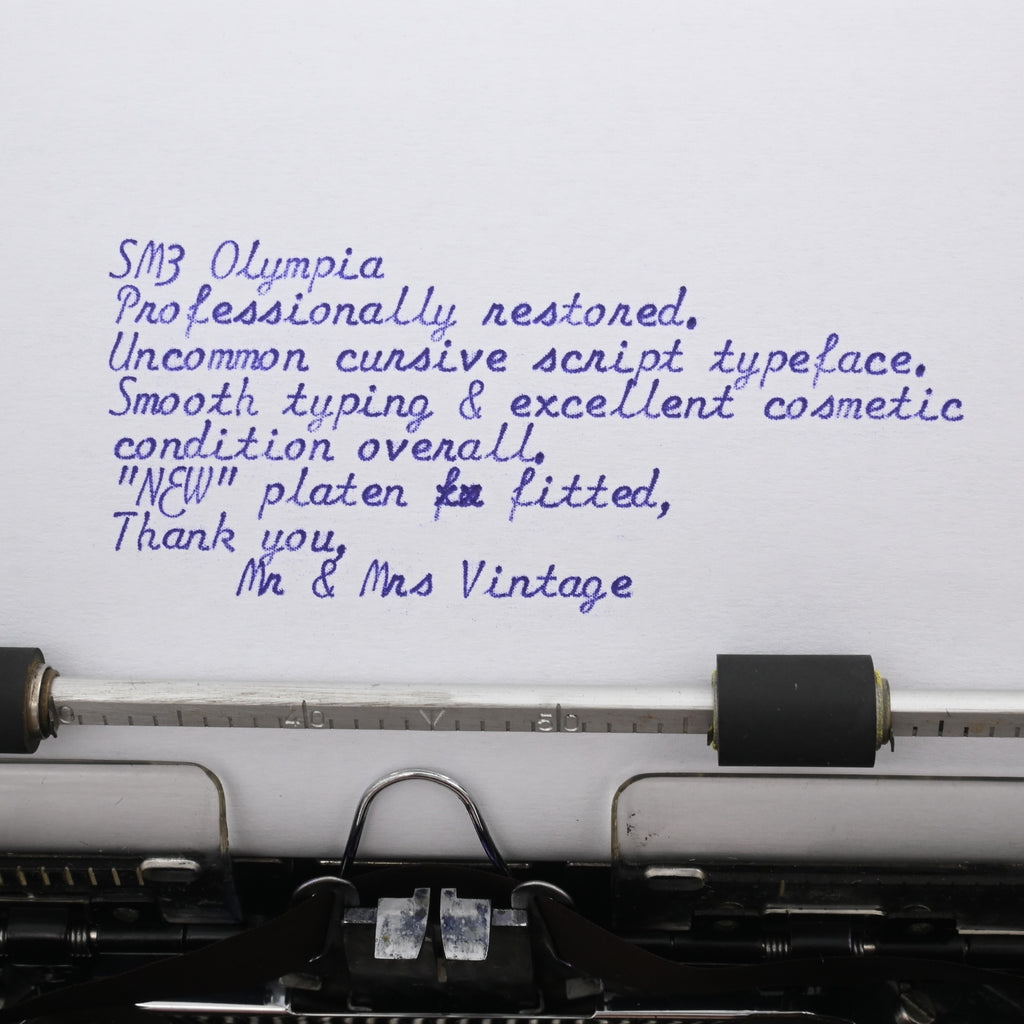 SM3 Olympia
Professionally restored.
Uncommon cursive script typeface.
Smooth typing & excellent cosmetic
condition overall.
"NEW" platen fitted,
Thank you,
Mr & Mrs Vintage
40 50